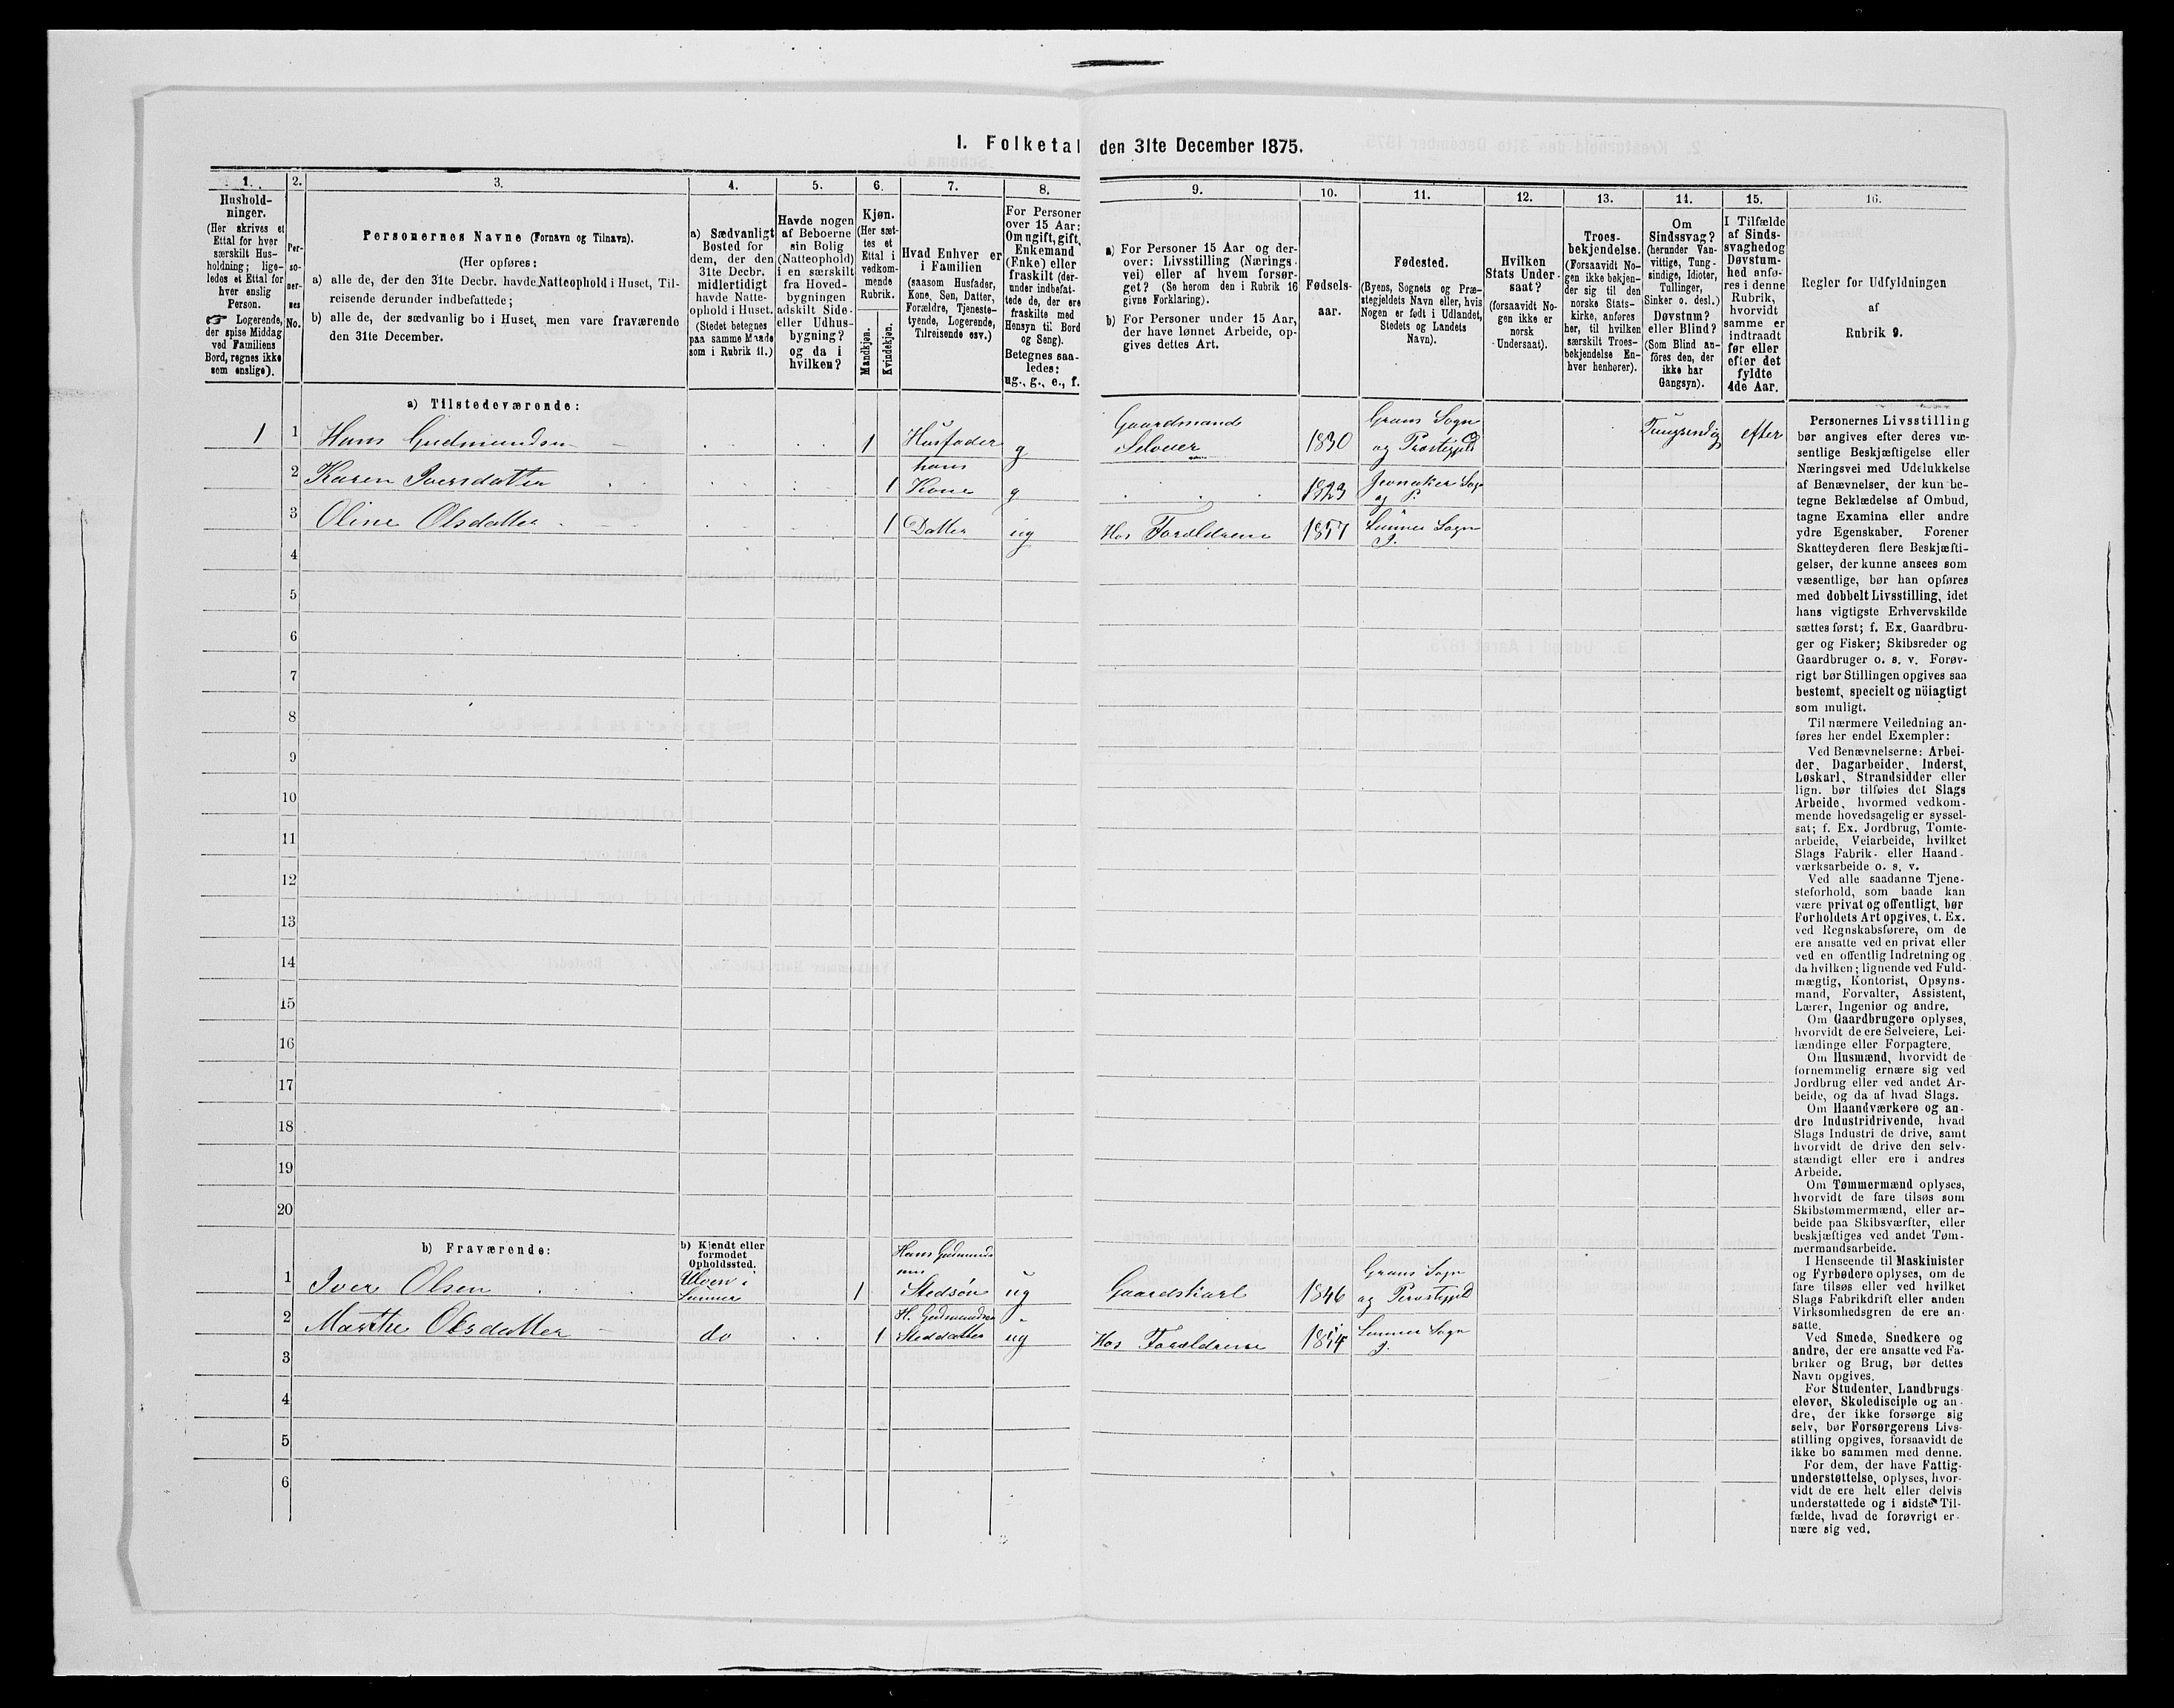 I. Folketal den 31te December 1875.
1.
2.
3.
4.
5.
6.
7.
8.
9.
10.
11.
12.
13.
14.
15.
16.
Hushold-
ninger.
(Her skrives et
Ettal for hver
særskilt Hus-
holdning; lige-
ledes et Ettal for
hver enslig
Person.
☞ Logerende,
der spise Middag
ved Familiens
Bord, regnes ikke
som enslige).
Per-
so-
ner-
nes
No.
Personernes Navne (Fornavn og Tilnavn).
(Her opføres:
a) alle de, der den 31te Decbr. havde Natteophold i Huset, Til-
reisende derunder indbefattede;
b) alle de, der sædvanlig bo i Huset, men vare fraværende
den 31te December.
a) Sædvanligt
Bosted for
dem, der den
31te Decbr.
midlertidigt
havde Natte-
ophold i Huset.
(Stedet betegnes
paa samme Maade
som i Rubrik 11.)
Havde nogen
af Beboerne
sin Bolig
(Natteophold)
i en særskilt
fra Hoved-
bygningen
adskilt Side-
eller Udhus-
bygning?
og da i
hvilken?
Kjøn.
(Her sæt-
tes et
Ettal i
vedkom-
mende
Rubrik.
Mandkjøn.
Kvindekjøn.
Hvad Enhver er
i Familien
(saasom Husfader,
Kone, Søn, Datter,
Forældre, Tjeneste-
tyende, Logerende,
Tilreisende osv.)
For Personer
over 15 Aar:
Om ugift, gift,
Enkemand
(Enke) eller
fraskilt (der-
under indbefat-
tede de, der ere
fraskilte med
Hensyn til Bord
og Seng).
Betegnes saa-
ledes:
ug., g., e., f.
a) For Personer 15 Aar og der-
over: Livsstilling (Nærings-
vei) eller af hvem forsør-
get? (Se herom den i Rubrik 16
givne Forklaring).
b) For Personer under 15 Aar,
der have lønnet Arbeide, op-
gives dettes Art.
Fødsels-
aar.
Fødested.
(Byens, Sognets og Præ-
stegjeldets Navn eller, hvis
Nogen er født i Udlandet,
Stedets og Landets
Navn).
Hvilken
Stats Under-
saat?
(forsaavidt No-
gen ikke er
norsk
Undersaat).
Troes-
bekjendelse.
(Forsaavidt No-
gen ikke bekjen-
der sig til den
norske Stats-
kirke, anføres
her, til hvilken
særskilt Troes-
bekjendelse En-
hver henhører).
Om
Sindssvag?
(herunder Van-
vittige, Tung-
sindige, Idioter,
Tullinger,
Sinker o. desl.)
Døvstum?
eller Blind?
(Som Blind an-
föres den, der
ikke har
Gangsyn).
I Tilfælde
af Sinds-
svaghedog
Døvstum-
hed anfø-
res i denne
Rubrik,
hvorvidt
samme er
indtraadt
før eller
efter det
fyldte
4de Aar.
Regler for Udfyldningen
af
Rubrik 9.
a) Tilstedeværende:
1 1 Hans Gudmundsen 1 Husfader g Gaardmand Selveier 1830 Grans Sogn og Prestegjeld Tungsindig efter
2 Karen Iversdatter 1 hans Kone g 1823 Jevnaker Sogn og P
3 Oline Olsdatter 1 Datter ug Hos Forældrene 1857 Lunner Sogn P.
4
5
6
7
8
9
10
11
12
13
14
15
16
17
18
19
20
b) Fraværende:
b) Kjendt eller
formodet
Opholdssted.
1 Iver Olsen Ulven i Lunner 1 Hans Gudmundsens Stedsøn ug Gaardskarl 1846 Grans Sogn og Prestegjeld
2 Marthe Olsdatter do 1 H. Gudmundsen Steddatter ug Hos Forældrene 1854 Lunner Sogn P.
3
4
5
6
Personernes Livsstilling
bør angives efter deres væ-
sentlige Beskjæftigelse eller
Næringsvei med Udelukkelse
af Benævnelser, der kun be-
tegne Beklædelse af Ombud,
tagne Examina eller andre
ydre Egenskaber. Forener
Skatteyderen flere Beskjæfti-
gelser, der kunne ansees som
væsentlige, bør han opføres
med dobbelt Livsstilling, idet
hans vigtigste Erhvervskilde
sættes først; f. Ex. Gaardbru-
ger og Fisker; Skibsreder og
Gaardbruger o. s. v. Forøv-
rigt bør Stillingen opgives saa
bestemt, specielt og nöiagtigt
som muligt.
Til nærmere Veiledning an-
føres her endel Exempler:
Ved Benævnelserne: Arbei-
der, Dagarbeider, Inderst,
Løskarl, Strandsidder eller
lign. bør tilføies det Slags
Arbeide, hvormed vedkom-
mende hovedsagelig er syssel-
sat; f. Ex. Jordbrug, Tomte-
arbeide, Veiarbeide, hvilket
Slags Fabrik- eller Haand-
værksarbeide o. s. v.
Ved alle saadanne Tjene-
steforhold, som baade kan
være privat og offentligt, bør
Forholdets Art opgives, t. Ex.
ved Regnskabsførere, om de
ere ansatte ved en privat eller
ved en offentlig Indretning og
da hvilken; lignende ved Fuld-
mægtig, Kontorist, Opsyns-
mand, Forvalter, Assistent,
Lærer, Ingeniør og andre.
Om Gaardbrugere oplyses,
hvorvidt de ere Selveiere, Lei-
lændinge eller Forpagtere.
Om Husmænd, hvorvidt de
fornemmelig ernære sig ved
Jordbrug eller ved andet Ar-
beide, og da af hvad Slags.
Om Haandværkere og an-
dre Industridrivende, hvad
Slags Industri de drive, samt
hvorvidt de drive den selv-
stændigt eller ere i andres
Arbeide.
Om Tømmermænd oplyses,
hvorvidt de fare tilsøs som
Skibstømmermænd, eller ar-
beide paa Skibsværfter, eller
beskjæftiges ved andet Tøm-
mermandsarbeide.
I Henseende til Maskinister
og Fyrbødere oplyses, om de
fare tilsøs eller ved hvilket
Slags Fabrikdrift eller anden
Virksomhedsgren de ere an-
satte.
Ved Smede, Snedkere og
andre, der ere ansatte ved Fa-
briker og Brug, bør dettes
Navn opgives.
For Studenter, Landbrugs-
elever, Skoledisciple og an-
dre, der ikke forsørge sig
selv, bør Forsørgerens Livs-
stilling opgives, forsaavidt de
ikke bo sammen med denne.
For dem, der have Fattig-
understøttelse, oplyses, hvor-
vidt de ere helt eller delvis
understøttede og i sidste Til-
fælde, hvad de forøvrigt er-
nære sig ved.